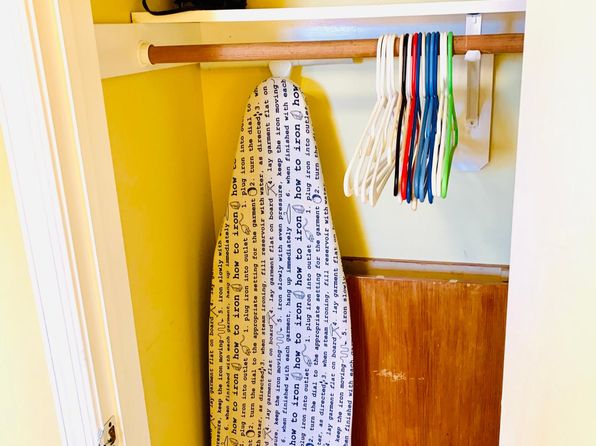 how to iron how to iron how to iron
1. plug iron into outlet
2. turn the dial to the appropriate setting for the garment
3. when steam ironing, fill reservoir with water, as directed
4. lay garment flat on board
5. iron slowly with even pressure, keep the iron moving
6. when finished with each garment, hang up immediately